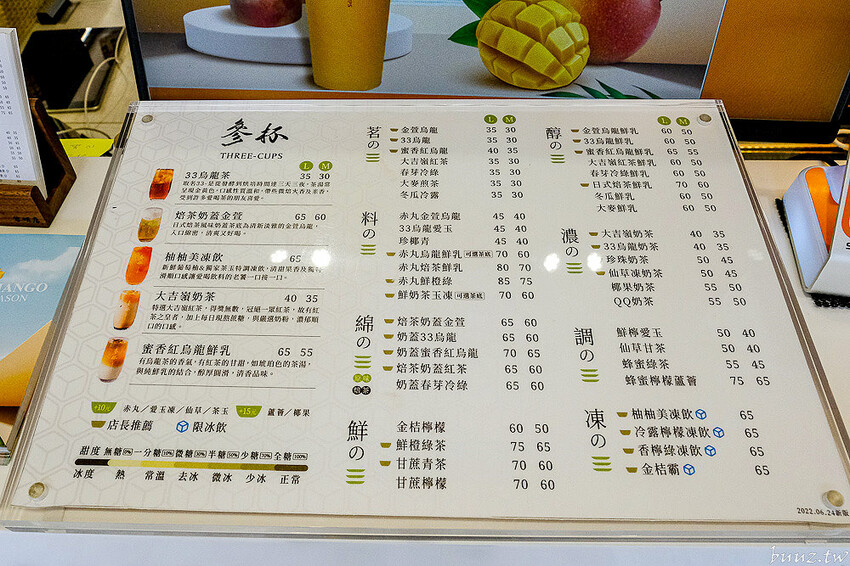 參杯
THREE-CUPS
L M
33烏龍茶 35 30
取名33,是從發酵到烘焙時間達三天三夜,茶湯常
呈現金黃色,口感性質溫和,帶些微焙火香及果香,
受到許多愛喝茶的朋友喜愛。
焙茶奶蓋金萱 65 60
日式焙茶風味奶蓋茶底為清新淡雅的金萱烏龍,
入口甜密,清爽又好喝。
柚柚美凍飲 65
新鮮葡萄柚&獨家茶玉特調凍飲,清甜果香及獨特
滑順口感讓愛喝飲料的老饕一口接一口。
大吉嶺奶茶 40 35
特選大吉嶺紅茶,得獎無數,冠絕一眾紅茶,故有紅
茶之皇者,加上每日現熬蔗糖,與嚴選奶粉,濃郁順
口的口感。
蜜香紅烏龍鮮乳 65 55
有烏龍茶的香氣,有紅茶的甘甜,如琥珀色的茶湯,
與純鮮乳的結合,醇厚圓滑,清香品味。
+10元 赤丸/愛玉凍/仙草/茶玉 +15元 蘆薈/椰果
店長推薦 限冰飲
甜度 無糖0% 一分糖10% 微糖30% 半糖50% 少糖70% 全糖100%
冰度 熱 常溫 去冰 微冰 少冰 正常
茗の
L M
金萱烏龍 35 30
33烏龍 35 30
蜜香紅烏龍 40 35
大吉嶺紅茶 35 30
春芽冷綠 35 30
大麥煎茶 35 30
冬瓜冷露 35 30
料の
赤丸金萱烏龍 45 40
33烏龍愛玉 45 40
珍椰青 45 40
赤丸烏龍鮮乳 可選茶底 70 60
赤丸焙茶鮮乳 80 70
赤丸鮮橙綠 85 75
鮮奶茶玉凍 可選茶底 70 60
綿の
原味
焙茶
焙茶奶蓋金萱 65 60
奶蓋33烏龍 65 60
奶蓋蜜香紅烏龍 70 65
焙茶奶蓋紅茶 65 60
奶蓋春芽冷綠 65 60
鮮の
金桔檸檬 60 50
鮮橙綠茶 75 65
甘蔗青茶 70 60
甘蔗檸檬 70 60
醇の
L M
金萱烏龍鮮乳 60 50
33烏龍鮮乳 60 50
蜜香紅烏龍鮮乳 65 55
大吉嶺紅茶鮮乳 60 50
春芽冷綠鮮乳 60 50
日式焙茶鮮乳 70 60
冬瓜鮮乳 60 50
大麥鮮乳 60 50
濃の
大吉嶺奶茶 40 35
33烏龍奶茶 40 35
珍珠奶茶 50 45
仙草凍奶茶 50 45
椰果奶茶 55 50
QQ奶茶 55 50
調の
鮮檸愛玉 50 40
仙草甘茶 50 40
蜂蜜綠茶 55 45
蜂蜜檸檬蘆薈 75 65
凍の
柚柚美凍飲 65
冷露檸檬凍飲 65
香檸綠凍飲 65
金桔霸 65
2022.06.24新版
buuz.tw